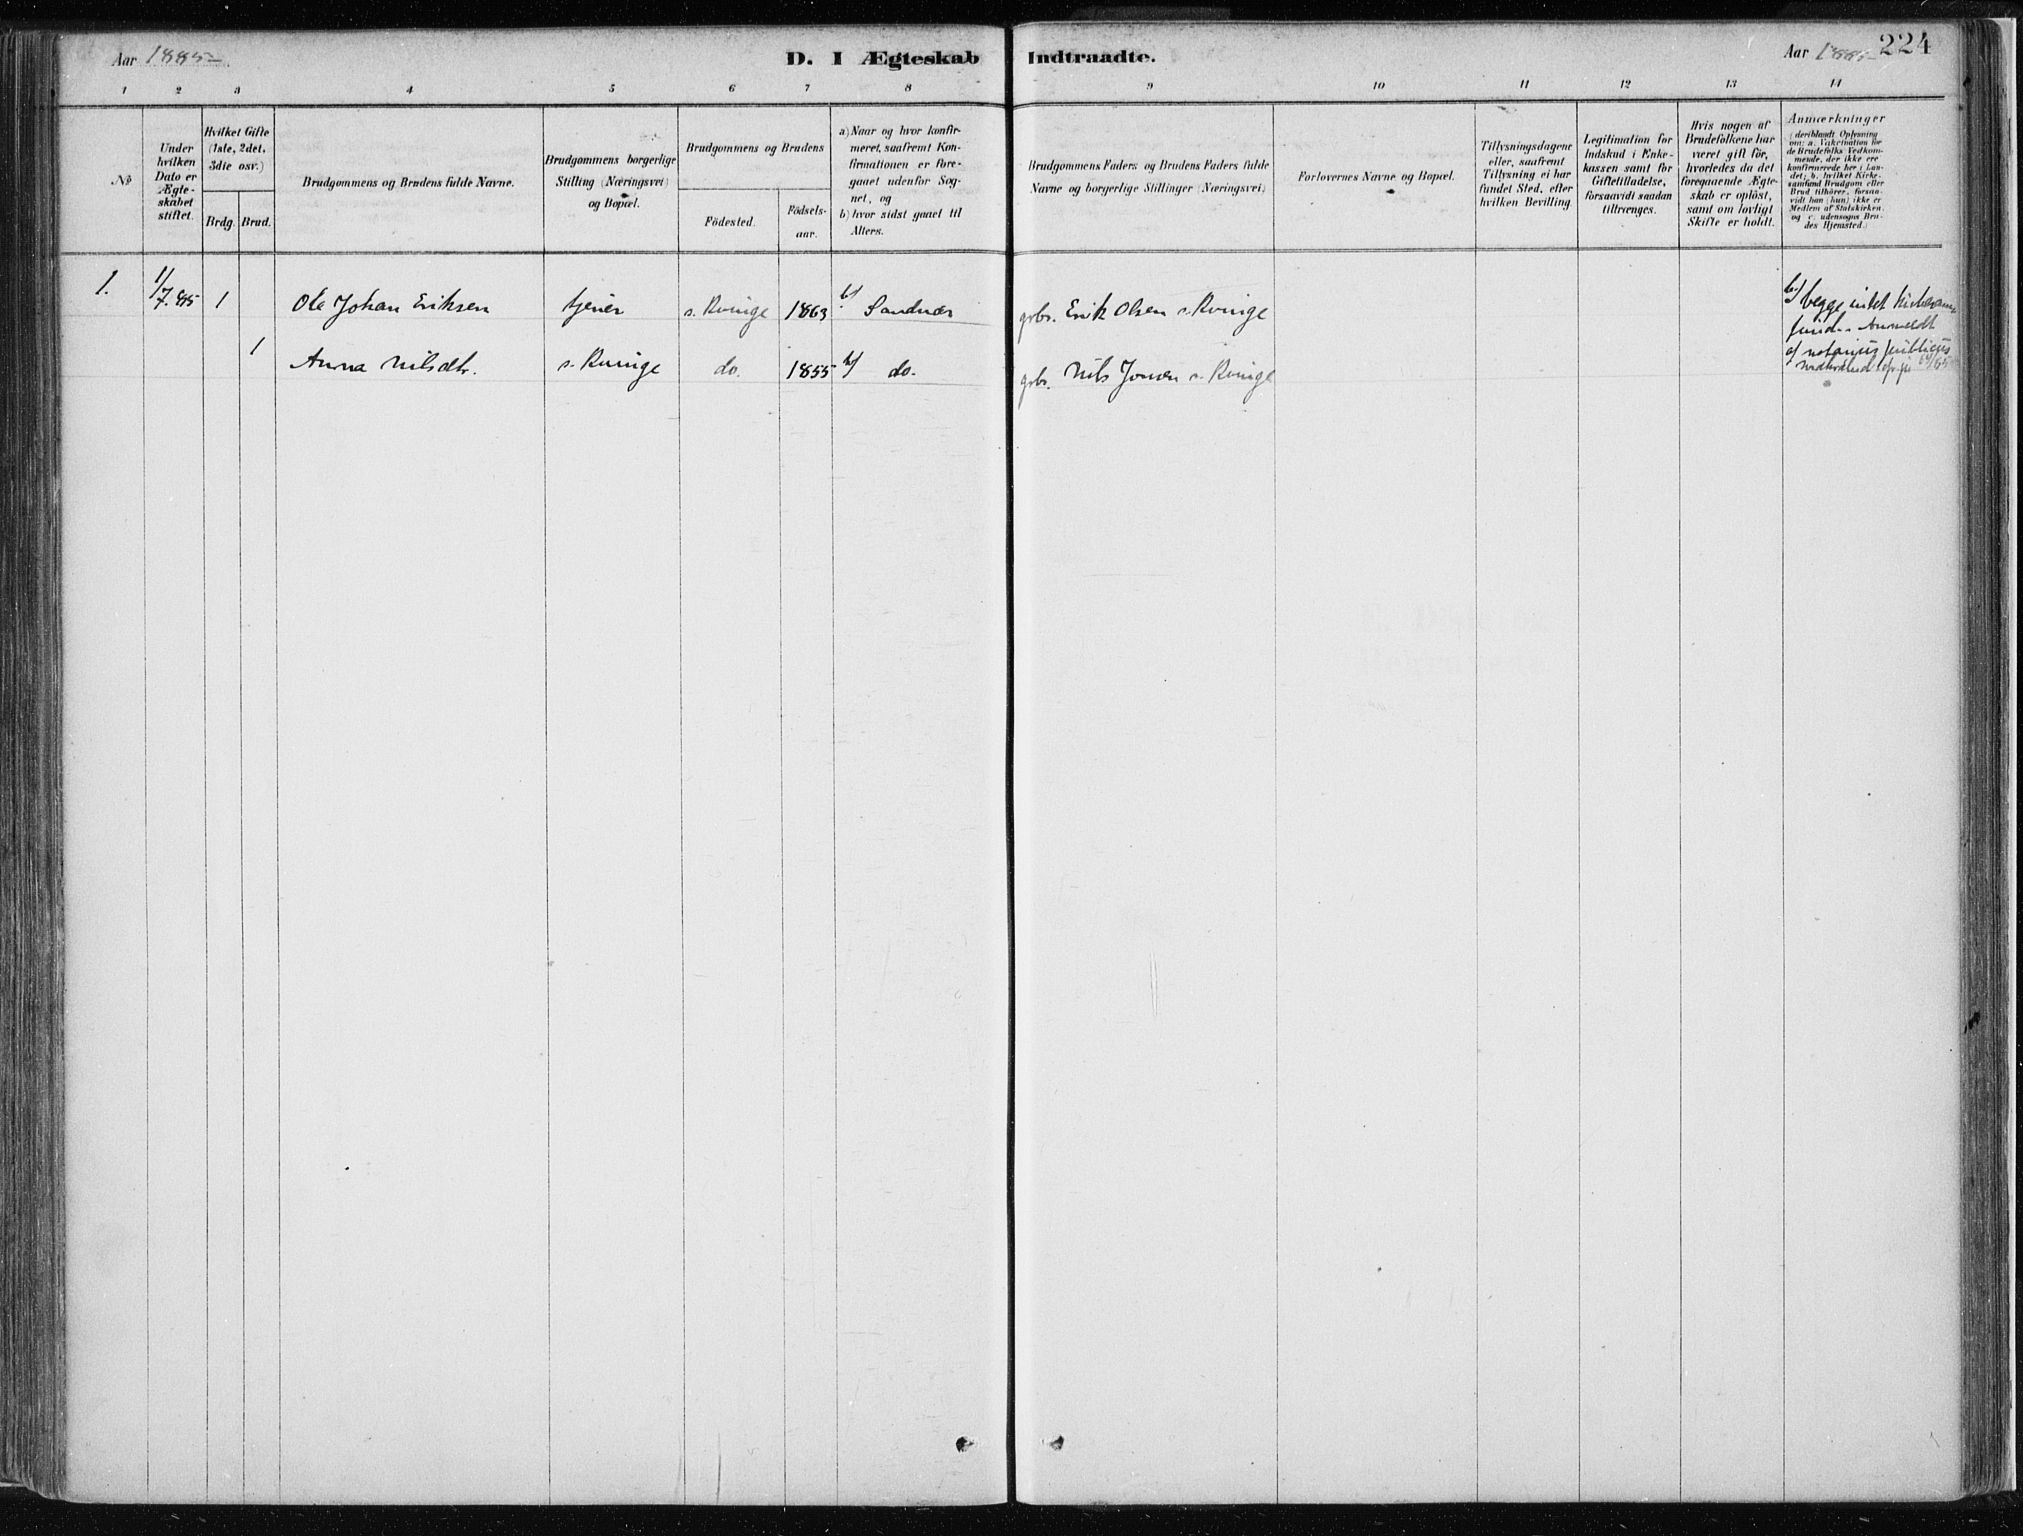 Aar 1885
D. I Ægteskab Indtraadte.
Aar 1885
224
1 2 3 4 5 6 7 8 9 10 11 12 13 14
No
Under
hvilken
Dato er
Ægte-
skabet
stiftet.
Hvilket Gifte
(1ste, 2det,
3die osv.)
Brdg. Brud.
Brudgommens og Brudens fulde Navne.
Brudgommens borgerlige
Stilling (Næringsvei)
og Bopæl.
Brudgommens og Brudens
Födested.
Födsels-
aar.
a) Naar og hvor konfir-
meret, saafremt Kon-
firmationen er fore-
gaaet udenfor Sog-
net, og
b) hvor sidst gaaet til
Alters.
Brudgommens Faders og Brudens Faders fulde
Navne og borgerlige Stillinger (Næringsvei)
Forlovernes Navne og Bopæl.
Tillysningsdagene
eller, saafremt
Tillysning ei har
fundet Sted, efter
hvilken Bevilling.
Legitimation for
Indskud i Enke-
kassen samt for
Giftetilladelse,
forsaavidt saadan
tiltrænges.
Hvis nogen af
Brudefolkene har
været gift för,
hvorledes da det
foregaaende Ægte-
skab er oplöst,
samt om lovligt
Skifte er holdt.
Anmærkninger
(deriblandt Oplysning
om: a. Vakcination for
de Brudefolks Vedkom-
mende, der ikke ere
konfirmerede her i Lan-
det; b. hvilket Kirke-
samfund Brudgom eller
Brud tilhörer, forsaa-
vidt han (hun) ikke er
Medlem af Statskirken,
og c. udensogns Bru-
des Hjemsted.)
1. 1/7 85 1 Ole Johan Eriksen tjener s. Kvinge 1863 b/ Sandnær grbr. Erik Olsen s. Kvinge
b/ begge intet kirkesam-
fund. Anmeldt
1 Anna Nilsdtr. s. Kvinge do. 1855 b/ do. grbr. Nils Jonsen s. Kvinge
af notarius publicus